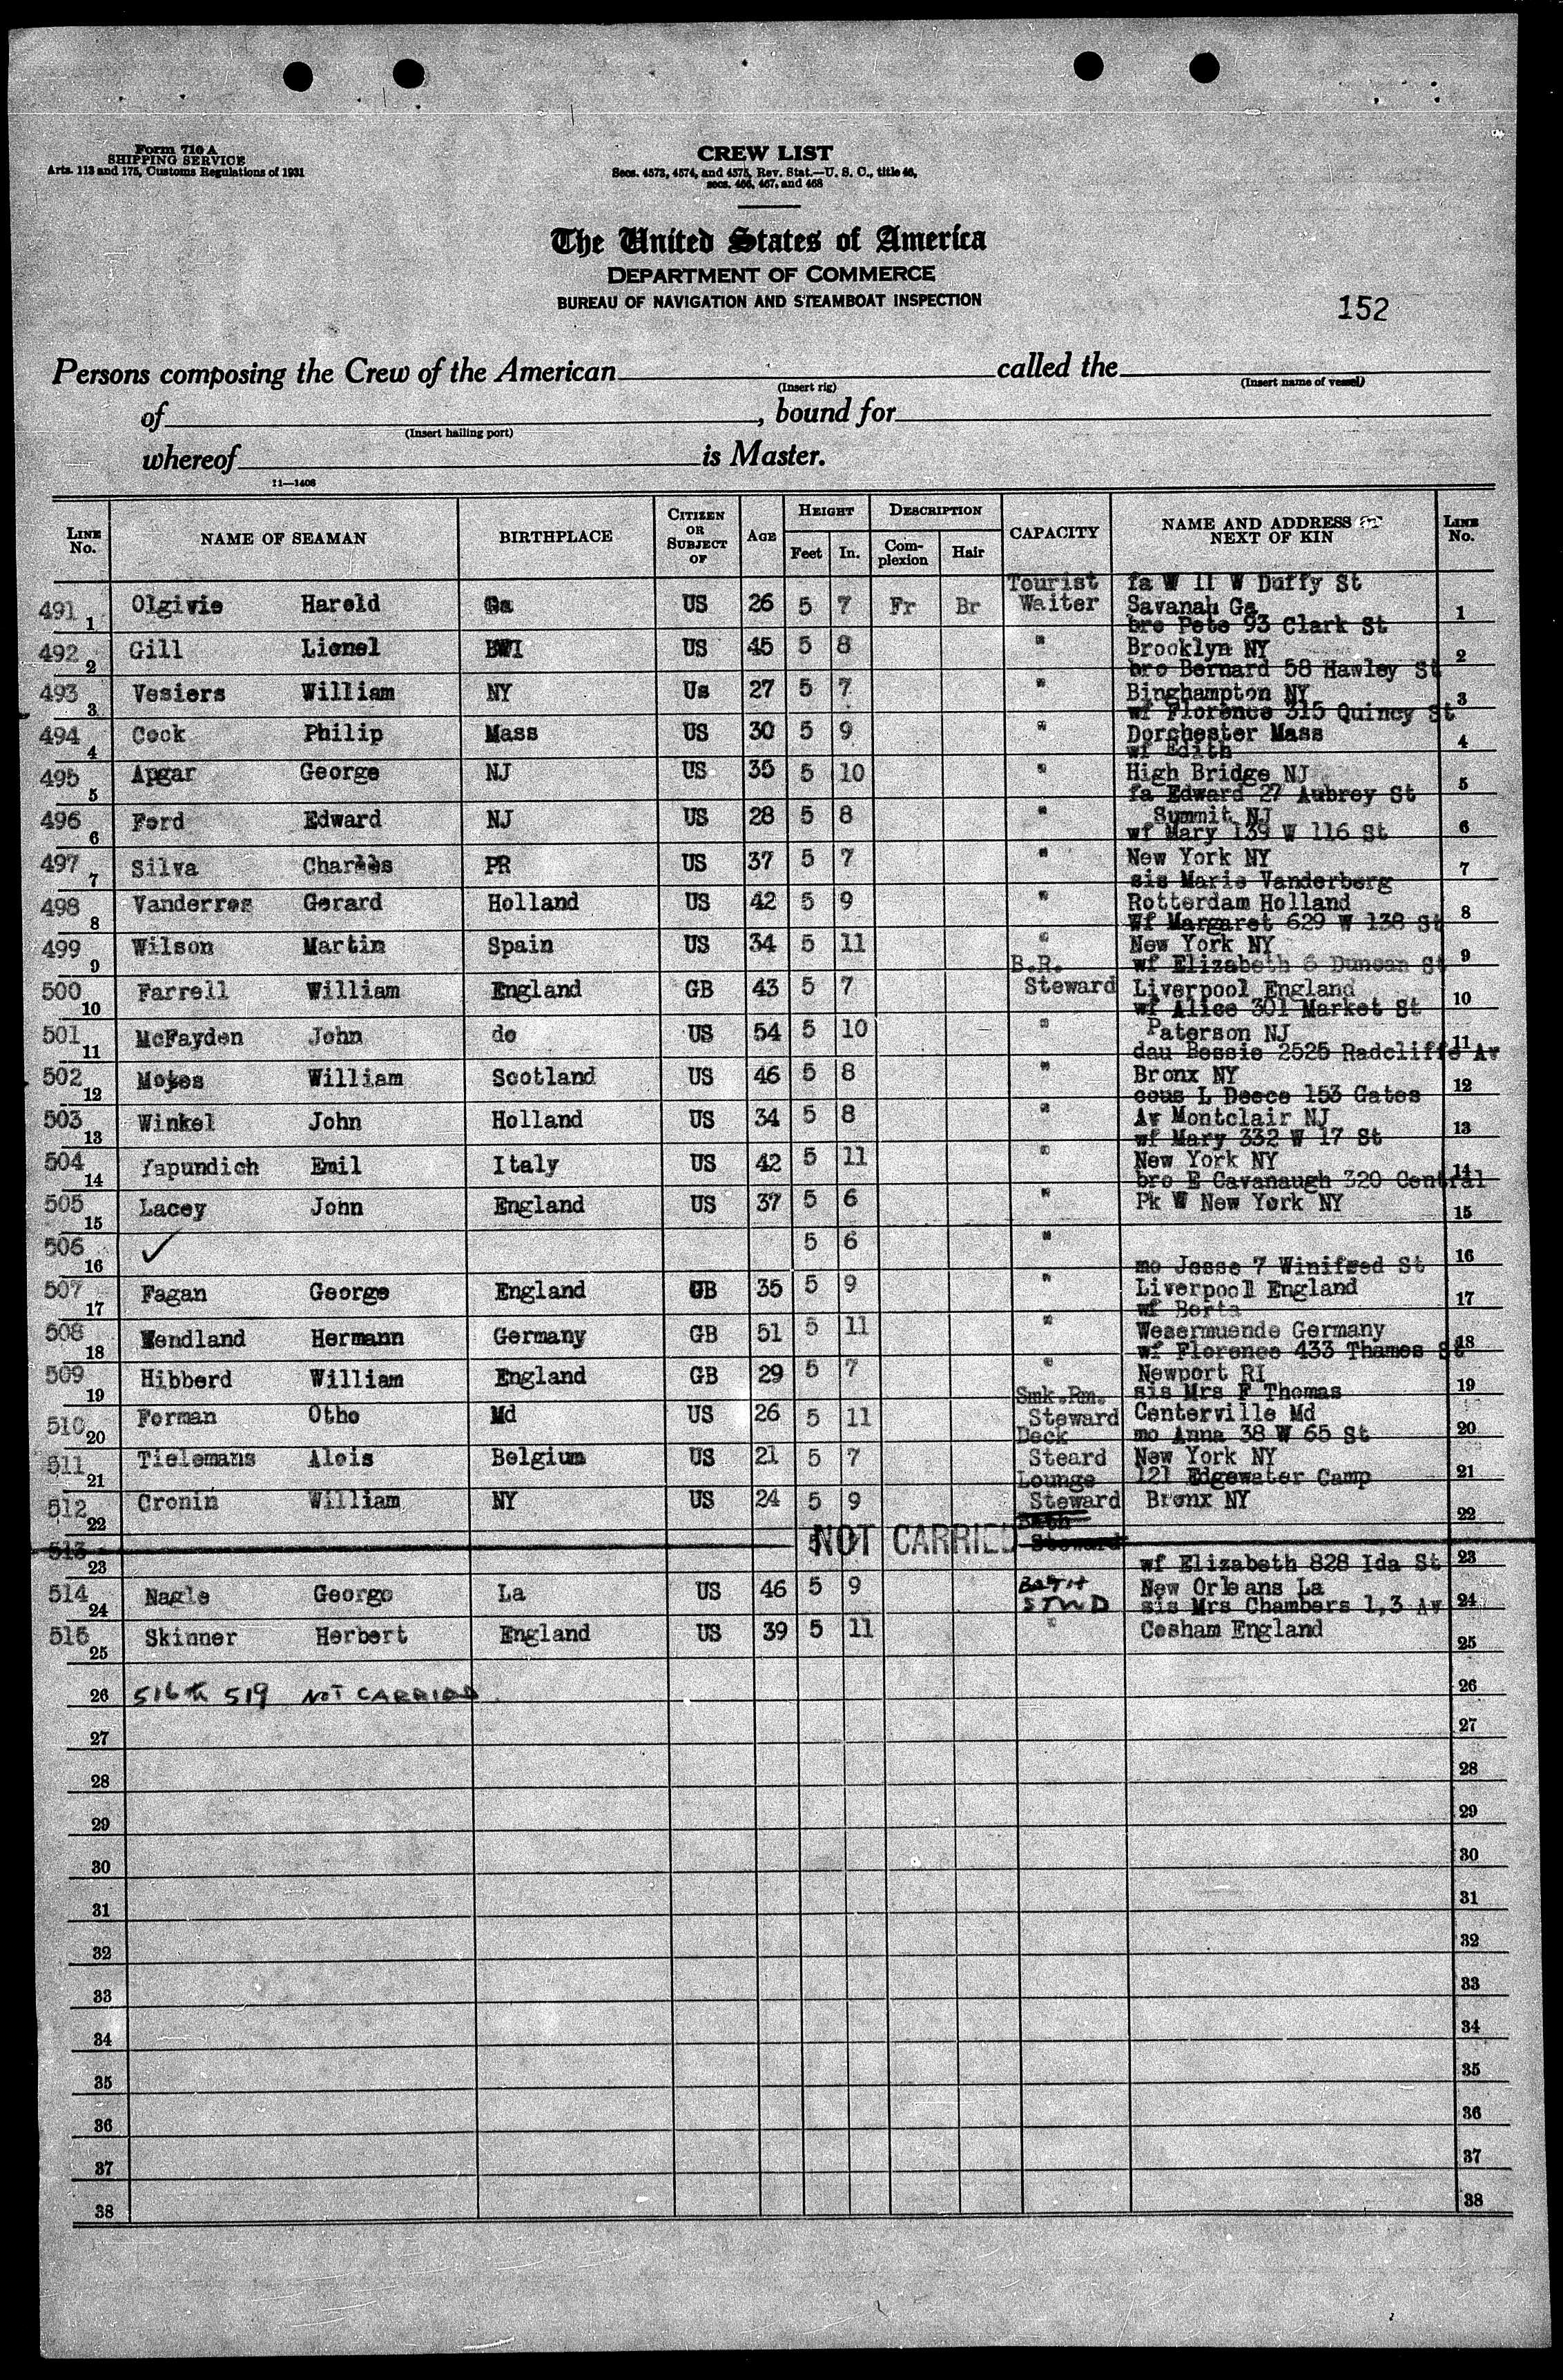 Form 710 A
SHIPPING SERVICE
Arts. 113 and 175, Customs Regulations of 1931
CREW LIST
Secs. 4573, 4574, and 4575, Rev. Stat.—U. S. C., title 46,
secs. 466, 467, and 468
The United States of America
DEPARTMENT OF COMMERCE
BUREAU OF NAVIGATION AND STEAMBOAT INSPECTION
152
Persons composing the Crew of the American called the
(Insert rig) (Insert name of vessel)
of , bound for
(Insert hailing port)
whereof is Master.
11—1408
LINE No. NAME OF SEAMAN BIRTHPLACE CITIZEN OR SUBJECT OF AGE HEIGHT Feet In. DESCRIPTION Complexion Hair CAPACITY NAME AND ADDRESS OF NEXT OF KIN LINE No.
491 1 Olgivie Harold Ga US 26 5 7 Fr Br Tourist Waiter fa W 11 W Duffy St Savanah Ga 1
492 2 Gill Lionel BWI US 45 5 8 " bro Pete 93 Clark St Brooklyn NY 2
493 3 Vesiers William NY Us 27 5 7 " bro Bernard 58 Hawley St Binghampton NY 3
494 4 Cook Philip Mass US 30 5 9 " wf Florence 315 Quincy St Dorchester Mass 4
495 5 Apgar George NJ US 35 5 10 " wf Edith High Bridge NJ 5
496 6 Ford Edward NJ US 28 5 8 " fa Edward 27 Aubrey St Summit NJ 6
497 7 Silva Charles PR US 37 5 7 " wf Mary 139 W 116 St New York NY 7
498 8 Vanderres Gerard Holland US 42 5 9 " sis Marie Vanderberg Rotterdam Holland 8
499 9 Wilson Martin Spain US 34 5 11 " Wf Margaret 629 W 138 St New York NY 9
500 10 Farrell William England GB 43 5 7 B.R. Steward wf Elizabeth 6 Duncan St Liverpool England 10
501 11 McFayden John do US 54 5 10 " wf Alice 301 Market St Paterson NJ 11
502 12 Moyes William Scotland US 46 5 8 " dau Bessie 2525 Radcliffe Av Bronx NY 12
503 13 Winkel John Holland US 34 5 8 " cous L Deece 153 Gates Av Montclair NJ 13
504 14 Yapundich Emil Italy US 42 5 11 " wf Mary 332 W 17 St New York NY 14
505 15 Lacey John England US 37 5 6 " bro E Cavanaugh 320 Central Pk W New York NY 15
506 16 ✓ 5 6 " 16
507 17 Fagan George England GB 35 5 9 " mo Jesse 7 Winifred St Liverpool England 17
508 18 Wendland Hermann Germany GB 51 5 11 " wf Berta Wesermuende Germany 18
509 19 Hibberd William England GB 29 5 7 " wf Florence 433 Thames St Newport RI 19
510 20 Forman Otho Md US 26 5 11 Smk.Rm. Steward sis Mrs F Thomas Centerville Md 20
511 21 Tielemans Alois Belgium US 21 5 7 Deck Steard mo Anna 38 W 65 St New York NY 21
512 22 Cronin William NY US 24 5 9 Lounge Steward 121 Edgewater Camp Bronx NY 22
513 23 NOT CARRIED Bath Steward 23
514 24 Nagle George La US 46 5 9 BATH STWD wf Elizabeth 828 Ida St New Orleans La 24
515 25 Skinner Herbert England US 39 5 11 " sis Mrs Chambers 1,3 Av Cosham England 25
26 516 to 519 NOT CARRIED 26
27 27
28 28
29 29
30 30
31 31
32 32
33 33
34 34
35 35
36 36
37 37
38 38